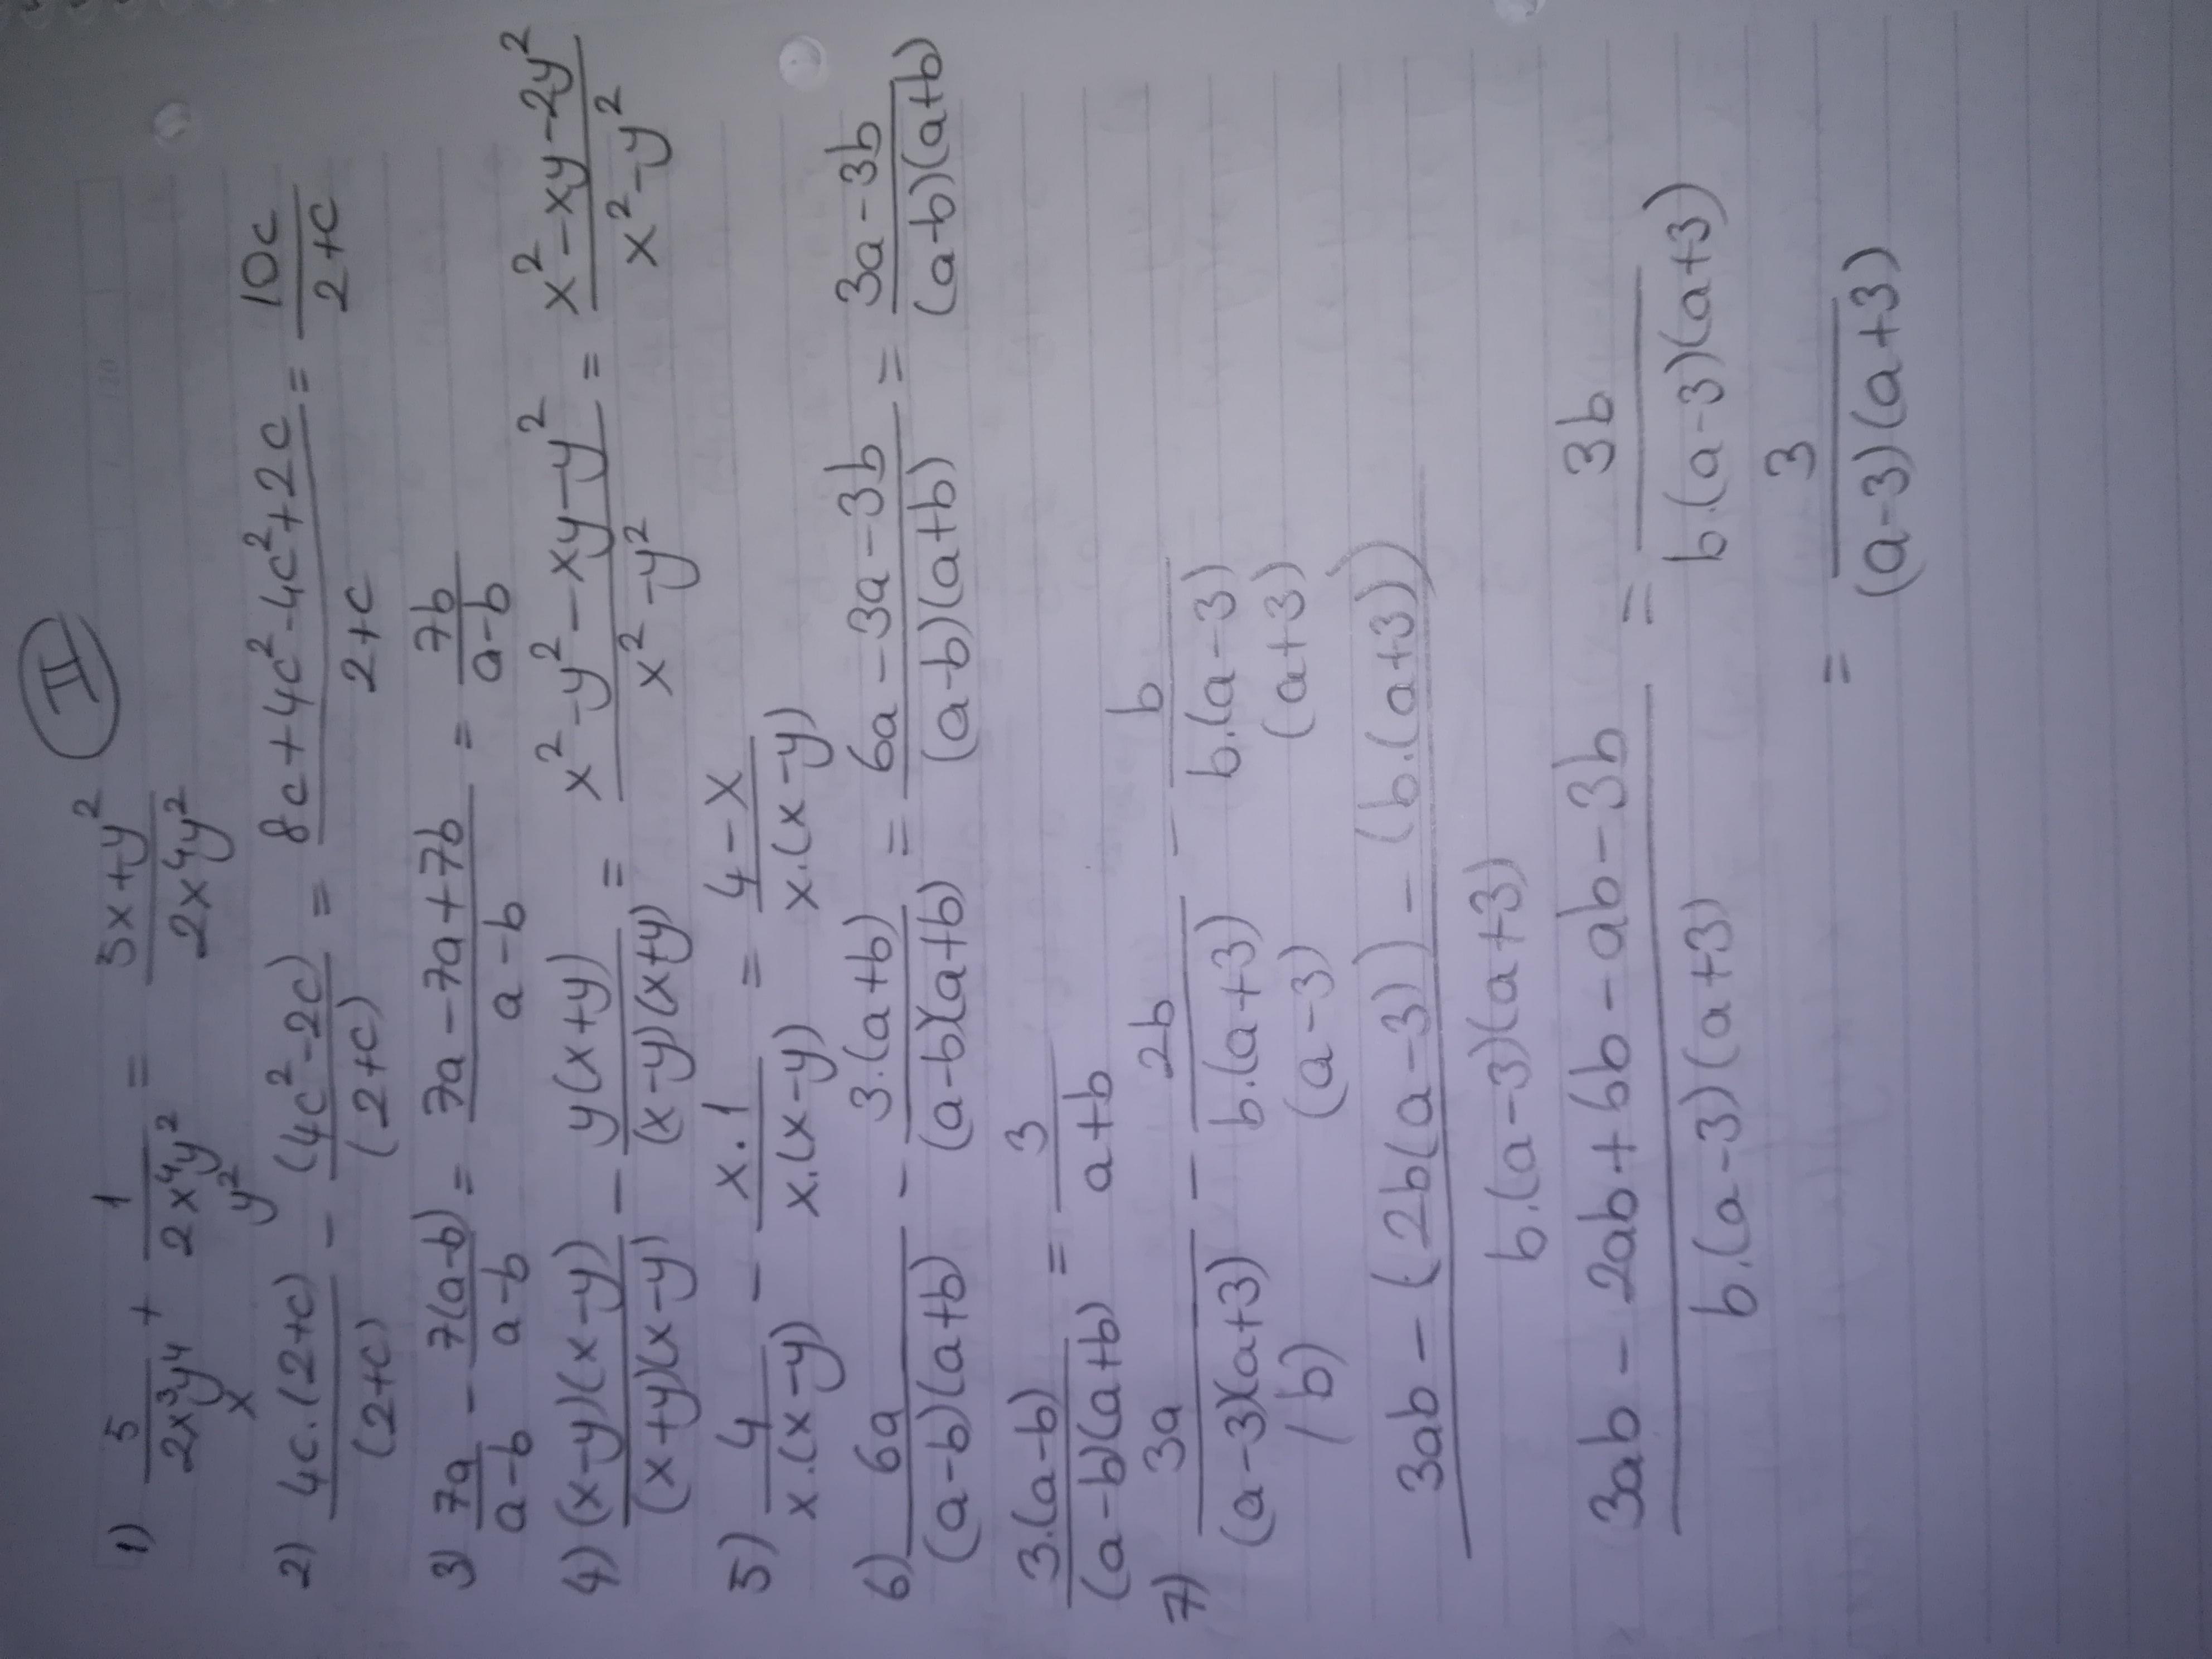 II
1) 5/(2x³y⁴) + 1/(2x⁴y²) = (5x+y²)/(2x⁴y²)
x y²
2) (4c.(2+c))/((2+c)) - (4c²-2c)/((2+c)) = (8c+4c²-4c²+2c)/(2+c) = 10c/(2+c)
3) 7a/(a-b) - 7(a-b)/(a-b) = (7a-7a+7b)/(a-b) = 7b/(a-b)
4) ((x-y)(x-y))/((x+y)(x-y)) - (y(x+y))/((x-y)(x+y)) = (x²-y²-xy-y²)/(x²-y²) = (x²-xy-2y²)/(x²-y²)
5) 4/(x.(x-y)) - (x.1)/(x.(x-y)) = (4-x)/(x.(x-y))
6) 6a/((a-b)(a+b)) - (3.(a+b))/((a-b)(a+b)) = (6a-3a-3b)/((a-b)(a+b)) = (3a-3b)/((a-b)(a+b))
(3.(a-b))/((a-b)(a+b)) = 3/(a+b)
7) 3a/((a-3)(a+3)) - 2b/(b.(a+3)) - b/(b.(a-3))
/b) (a-3) (a+3)
(3ab-(2b(a-3))-(b.(a+3)))/(b.(a-3)(a+3))
(3ab-2ab+6b-ab-3b)/(b.(a-3)(a+3)) = 3b/(b.(a-3)(a+3))
= 3/((a-3)(a+3))